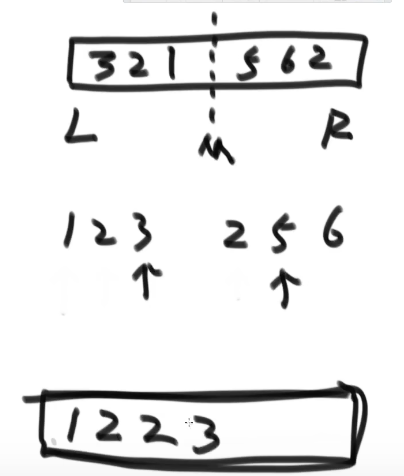 3 2 1 5 6 2
L M R
1 2 3 2 5 6
1 2 2 3